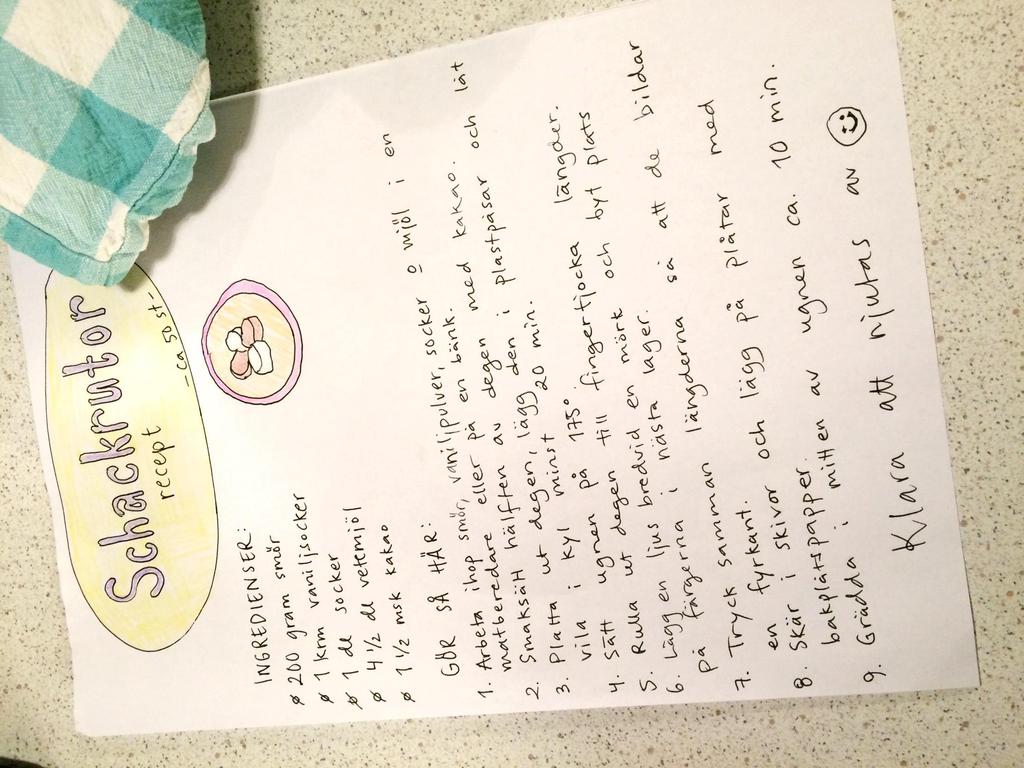 Schackrutor
recept
-ca 50 st-
INGREDIENSER:
ø 200 gram smör
ø 1 krm vaniljsocker
ø 1 dl socker
ø 4 1/2 dl vetemjöl
ø 1 1/2 msk kakao
GÖR SÅ HÄR:
1. Arbeta ihop smör, vaniljpulver, socker o mjöl i en
matberedare eller på en bänk.
2. Smaksätt hälften av degen med kakao.
3. Platta ut degen, lägg den i plastpåsar och låt
vila i kyl minst 20 min.
4. Sätt ugnen på 175°.
5. Rulla ut degen till fingertjocka längder.
6. Lägg en ljus bredvid en mörk och byt plats
på färgerna i nästa lager.
7. Tryck samman längderna så att de bildar
en fyrkant.
8. Skär i skivor och lägg på plåtar med
bakplåtspapper.
9. Grädda i mitten av ugnen ca. 10 min.
Klara att njutas av